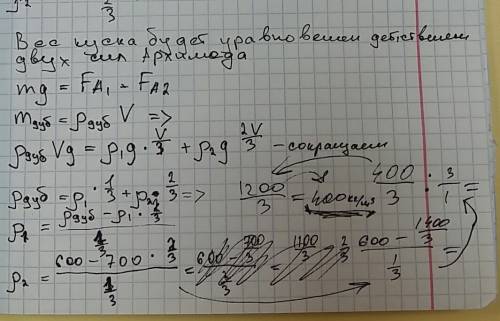 2/3
Вес куска будет уравновешен действием
двух сил Архимеда
mg = FA1 = FA2
mдуб = ρдуб V =>
ρдуб Vg = ρ1g · V/3 + ρ2g 2V/3 – сокращаем
ρдуб = ρ1 · 1/3 + ρ2 · 2/3 => 1200/3 = 400кг/м3 400/3 · 3/1 =
ρ1 = (ρдуб – ρ1 · 2/3) / (1/3)
ρ2 = (600 – 700 · 2/3) / (1/3) = (600 – 1400/3) / (1/3) =